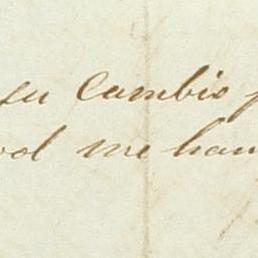 su Cambio p
ol me han